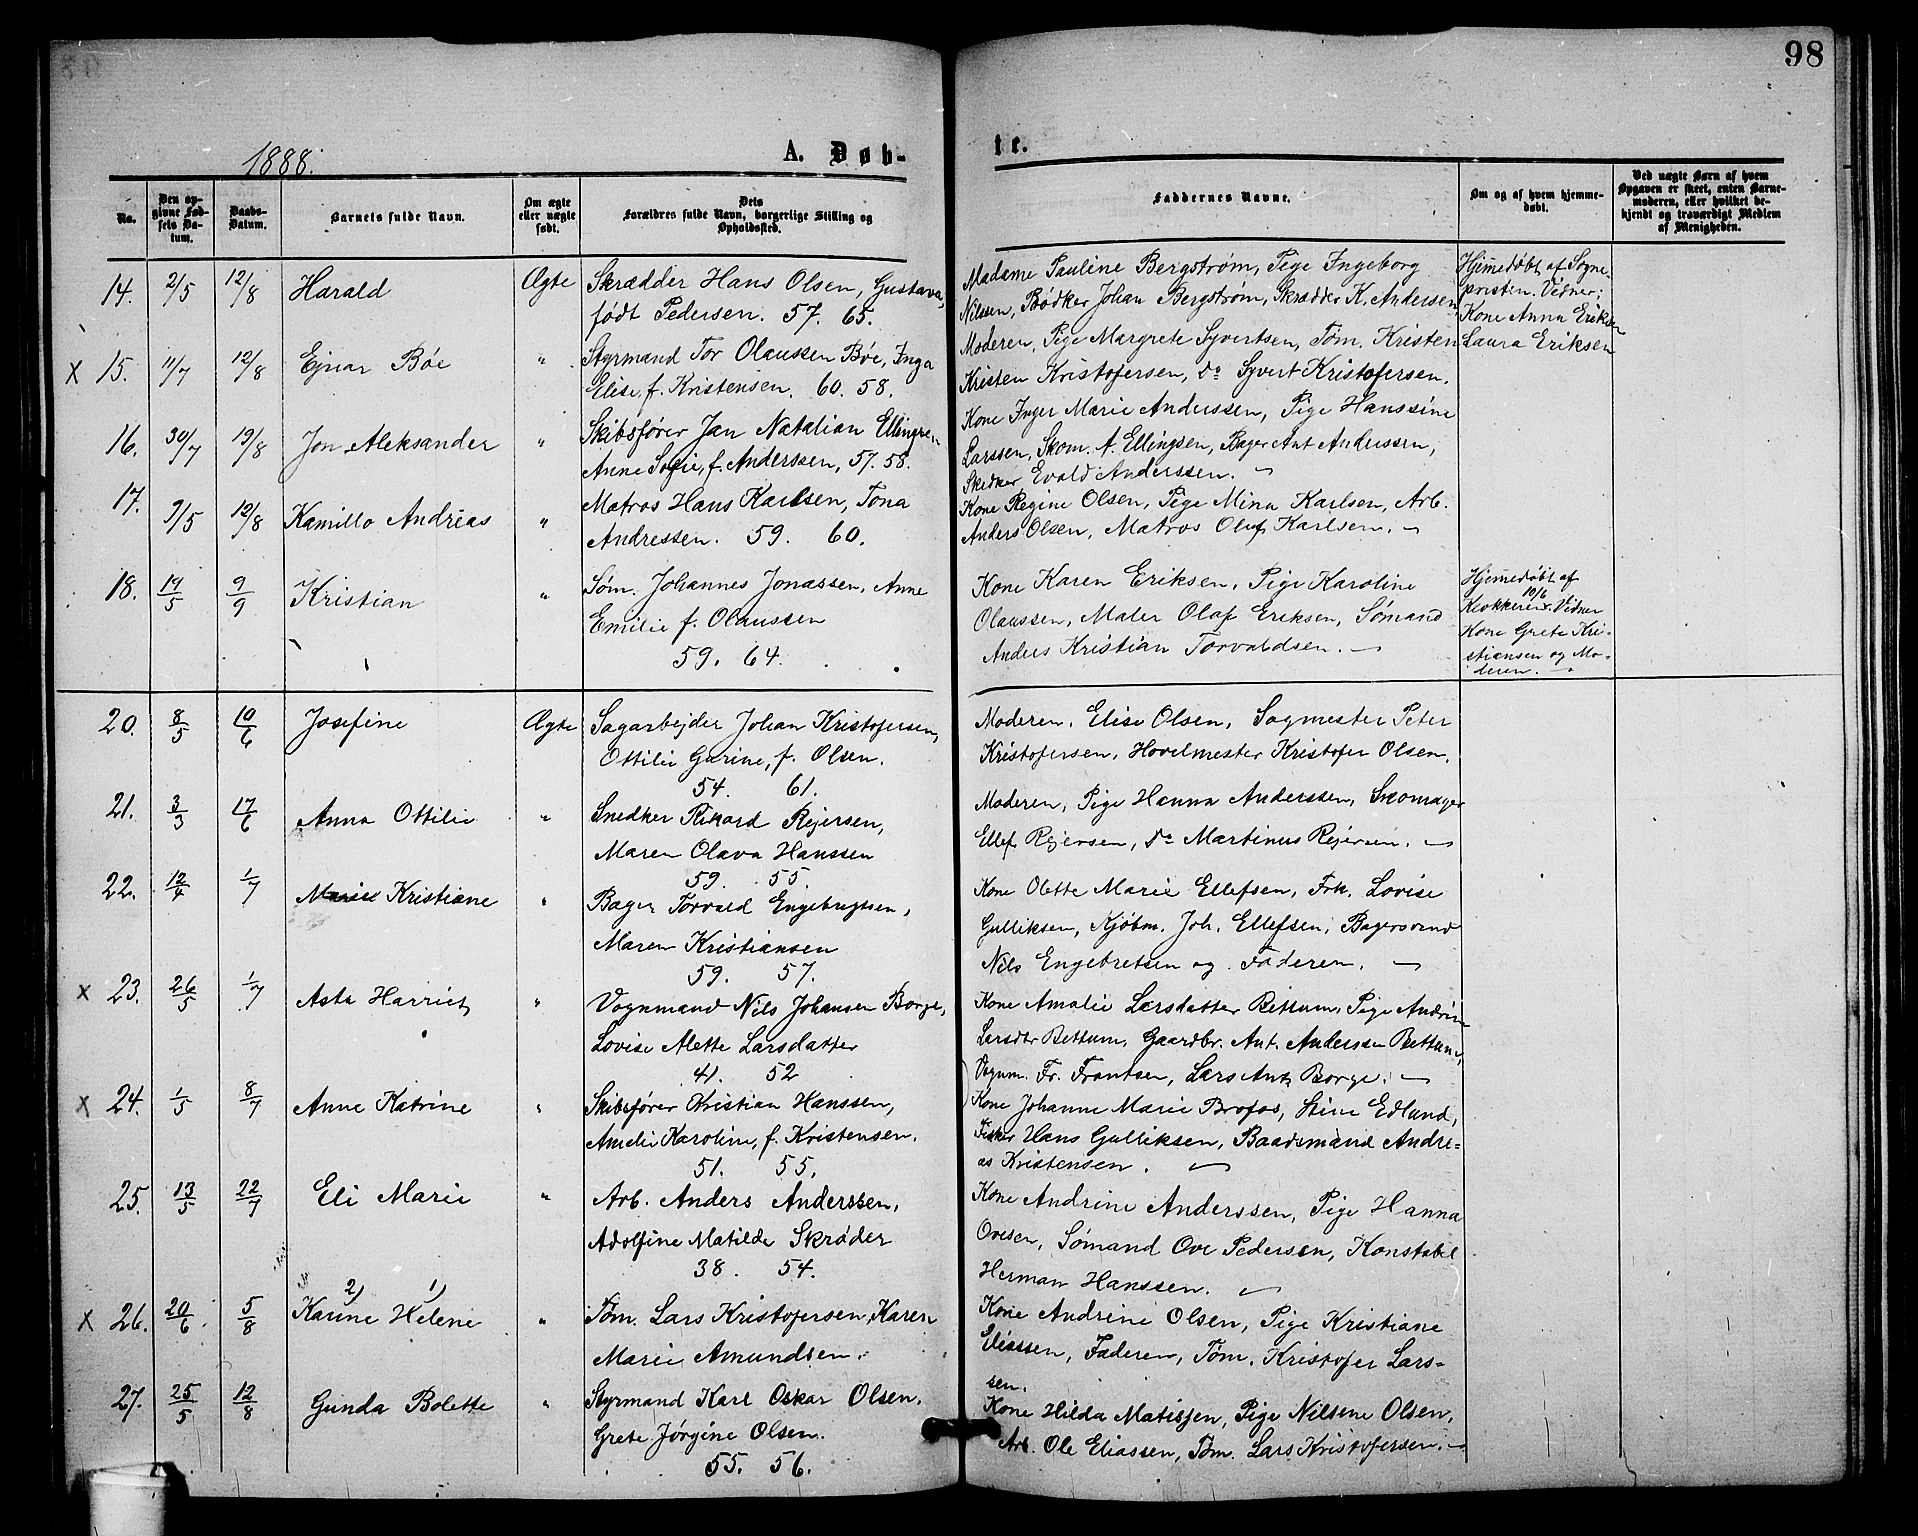 98
1888.
A. Døb-
te.
No.
Den op-
givne Fød-
sels Da-
tum.
Daabs-
Datum.
Barnets fulde Navn.
Om ægte
eller uægte
født.
Dets
Forældres fulde Navn, borgerlige Stilling og
Opholdssted.
Faddernes Navne.
Om og af hvem hjemme-
døbt.
Ved uægte Børn af hvem
Opgaven er skeet, enten Barne-
moderen, eller hvilket be-
kjendt og troværdigt Medlem
af Menigheden.
14. 2/5 12/8 Harald Ægte Skrædder Hans Olsen, Gustava,
født Pedersen. 57. 65.
Madame Pauline Bergstrøm, Pige Ingeborg
Nilssen, Bødker Johan Bergstrøm, Skrædder K. Andersen
Hjemmedøbt af Sogne-
presten. Vidner:
Kone Anna Eriksen
Laura Eriksen
X 15. 11/7 12/8 Ejnar Bøe " Styrmand Tor Olaussen Bøe, Inga
Elise, f. Kristensen. 60. 58.
Moderen, Pige Margrete Syvertsen, Tøm. Kristen
Kristen Kristofersen, Do Syvert Kristofersen.
16. 30/7 19/8 Jon Aleksander " Skibsfører Jan Natalian Ellingsen
Anne Sofie, f. Anderssen, 57. 58.
Kone Inger Marie Anderssen, Pige Hanssine
Larssen, Skom. A. Ellingsen, Bager Ant Anderssen,
Snedker Evald Anderssen.
17. 9/5 12/8 Kamillo Andreas " Matros Hans Karlsen, Tona
Andressen. 59. 60.
Kone Regine Olsen, Pige Mina Karlsen, Arb.
Anders Olsen, Matros Oluf Karlsen.
18. 19/5 9/9 Kristian " Søm. Johannes Jonassen, Anne
Emilie f. Olaussen
59. 64.
Kone Karen Eriksen, Pige Karoline
Olaussen, Maler Olaf Eriksen, Sømand
Anders Kristian Torvaldsen.
Hjemmedøbt af
Klokkeren 10/6. Vidner
Kone Grete Kri-
stiansen og Mo-
deren.
20. 8/5 10/6 Josefine Ægte Sagarbejder Johan Kristofersen,
Ottilie Gurine, f. Olsen.
54. 61.
Moderen, Elise Olsen, Sagmester Peter
Kristofersen, Hovelmester Kristofer Olsen.
21. 3/3 17/6 Anna Ottilie " Snedker Rikard Rejersen,
Maren Olava Hanssen
59. 55.
Moderen, Pige Hanna Anderssen, Skomager
Ellef Rejersen, Do Martinus Rejersen.
22. 12/4 1/7 Marie Kristiane " Bager Torvald Engebrigtsen,
Maren Kristiansen
59. 57.
Kone Olette Marie Ellefsen, Frk. Lovise
Gulliksen, Kjøbm. Joh. Ellefsen, Bagersvend
Nils Engebretsen og Faderen.
X 23. 26/5 1/7 Asta Harriet " Vognmand Nils Johansen Borge,
Lovise Alette Larsdatter
41. 52
Kone Amalie Larsdatter Rettum, Pige Andrine
Larsdtr Rettum, Gaardbr. Ant. Anderssen Rettum,
Vognm. Fr. Frantsen, Lars Ant Borge.
X 24. 1/5 8/7 Anne Katrine " Skibsfører Kristian Hanssen,
Amelie Karoline, f. Kristensen.
51. 55.
Kone Johanne Marie Brofos, Stine Edlund,
Fisker Hans Gulliksen, Baadsmand Andre-
as Kristensen.
25. 13/5 22/7 Eli Marie " Arb. Anders Anderssen,
Adolfine Matilde Skrøder
38. 54.
Kone Andrine Anderssen, Pige Hanna
Ovesen, Sømand Ove Pedersen, Konstabel
Herman Hanssen.
2) 1)
X 26. 20/6 5/8 Karine Helene " Tøm. Lars Kristofersen, Karen
Marie Amundsen.
Kone Andrine Olsen, Pige Kristiane
Eliassen, Faderen, Tøm. Kristofer Lars-
sen.
27. 25/5 12/8 Gunda Bolette " Styrmand Karl Oskar Olsen,
Grete Jørgine Olsen.
55. 56.
Kone Hilda Matisjen, Pige Nilsene Olsen,
Arb. Ole Eliassen, Tøm. Lars Kristofersen.